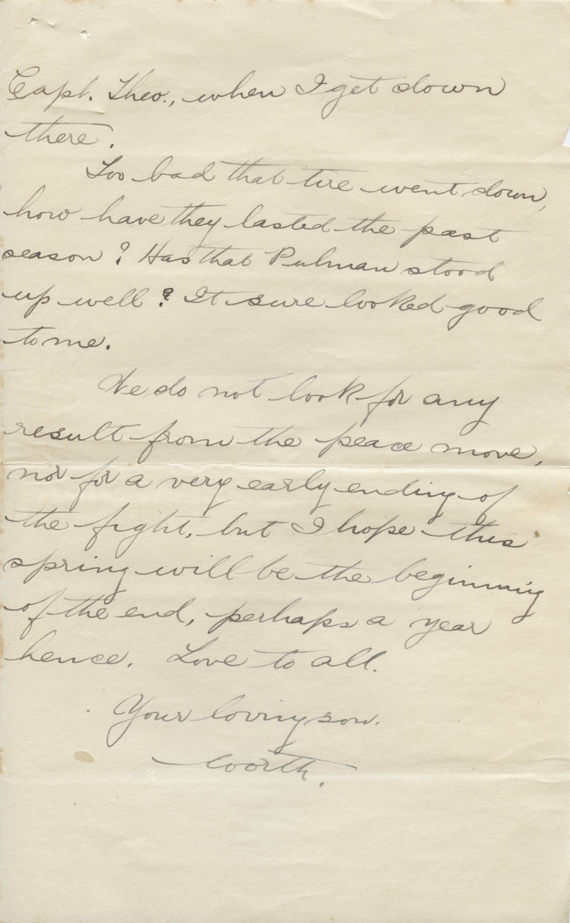 Capt. Theo., when I get down
there.
Too bad that tire went down,
how have they lasted the past
season? Has that Pulman stood
up well? It sure looked good
to me.
We do not look for any
result from the peace move,
nor for a very early ending of
the fight, but I hope this
spring will be the beginning
of the end, perhaps a year
hence. Love to all.
Your loving son.
Worth.